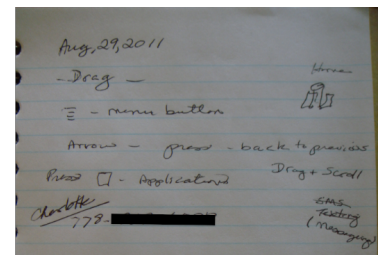 Aug, 29, 2011
- Drag -
Home
- menu button
Arrow - press - back to previous
Press □ - Applications
Drag + Scroll
Charlotte
778-
SMS
Texting
(Messaging)